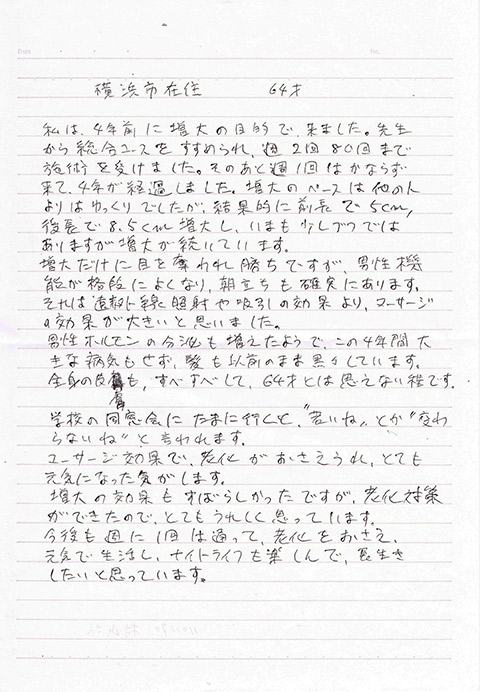 横浜市在住 64才
私は、4年前に増大の目的で、来ました。先生
から総合コースをすすめられ、週2回80回まで
施術を受けました。そのあと週1回はかならず
来て、4年が経過しました。増大のペースは他の人
よりはゆっくりでしたが、結果的に前長で5cm,
後長で8.5cm増大し、いまも少しづつでは
ありますが増大が続いています。
増大だけに目を奪われ勝ちですが、男性機
能が格段によくなり、朝立ちも確実にあります。
それは遠赤外線照射や吸引の効果より、ユーサージ
の効果が大きいと思いました。
男性ホルモンの分泌も増えたようで、この4年間大
きな病気もせず、髪も以前のまま黒々しています。
全身の皮膚も、すべすべして、64才とは思えない程です。
学校の同窓会にたまに行くと、"若いね"とか"変わ
らないね"と言われます。
ユーサージ効果で、老化がおさえられ、とても
元気になった気がします。
増大の効果もすばらしかったですが、老化対策
ができたので、とてもうれしく思っています。
今後も週に1回は通って、老化をおさえ、
元気で生活し、ナイトライフも楽しんで、長生き
したいと思っています。